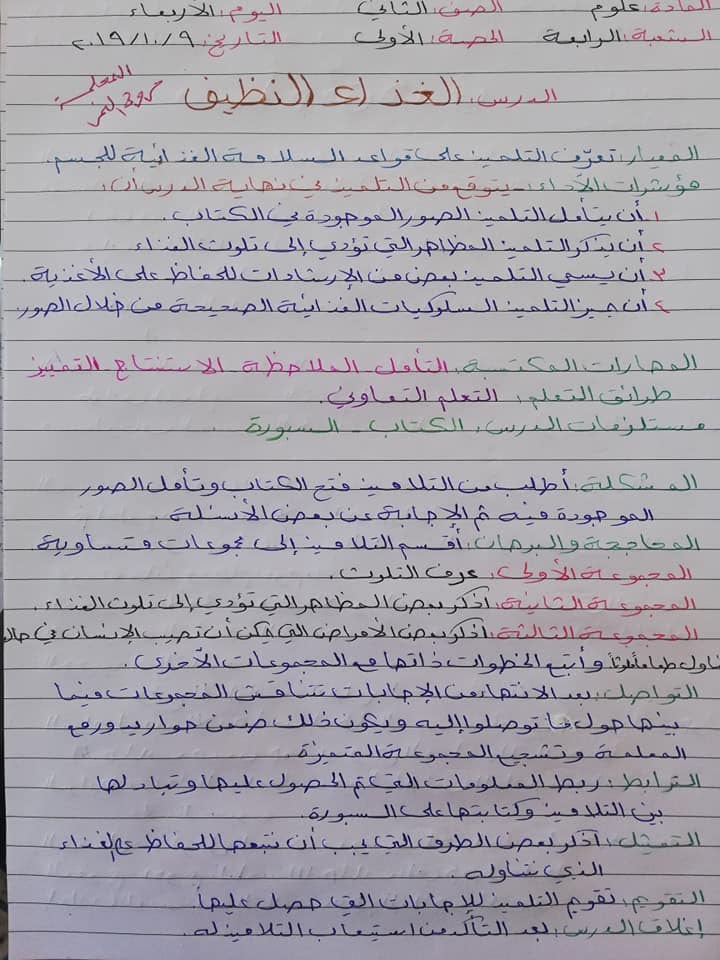 المادة: علوم الصف: الثاني اليوم: الأربعاء
الشعبة: الرابعة الحصة: الأولى التاريخ: ٢٠١٩/١٠/٩
الدرس: الغذاء النظيف
المعلمة
المعيار: تعرّف التلميذ على قواعد السلامة الغذائية للجسم.
مؤشرات الأداء: يتوقع من التلميذ في نهاية الدرس أن:
١. أن يتأمل التلميذ الصور الموجودة في الكتاب.
٢. أن يذكر التلميذ المظاهر التي تؤدي إلى تلوث الغذاء
٣. أن يسمي التلميذ بعض من الإرشادات للحفاظ على الأغذية.
٤. أن يميز التلميذ السلوكيات الغذائية الصحيحة من خلال الصور.
المهارات المكتسبة: التأمل الملاحظة الاستنتاج التمييز
طرائق التعلم: التعلم التعاوني.
مستلزمات الدرس: الكتاب - السبورة.
المشكلة: أطلب من التلاميذ فتح الكتاب وتأمل الصور
الموجودة فيه ثم الإجابة عن بعض الأسئلة.
المحاججة والبرهان: أقسم التلاميذ إلى مجموعات متساوية
المجموعة الأولى: عرف التلوث.
المجموعة الثانية: اذكر بعض المظاهر التي تؤدي إلى تلوث الغذاء.
المجموعة الثالثة: اذكر بعض الأمراض التي يمكن أن تصيب الإنسان في
طعاماً ملوثاً وأتبع الخطوات ذاتها مع المجموعات الأخرى.
التواصل: بعد الانتهاء من الإجابات تتناقش المجموعات فيما
بينها حول ما توصلوا إليه ويكون ذلك ضمن حوار يدير ورفع
المعلمة وتشجيع المجموعة المتميزة.
الترابط: ربط المعلومات التي تم الحصول عليها وتبادلها
بين التلاميذ وكتابتها على السبورة.
التمثيل: اذكر بعض الطرق التي يجب أن نتبعها للحفاظ على الغذاء
الذي نتناوله.
التقويم: تقويم التلميذ للإجابات التي حصل عليها.
إغلاق الدرس: بعد التأكد من استيعاب التلاميذ له.